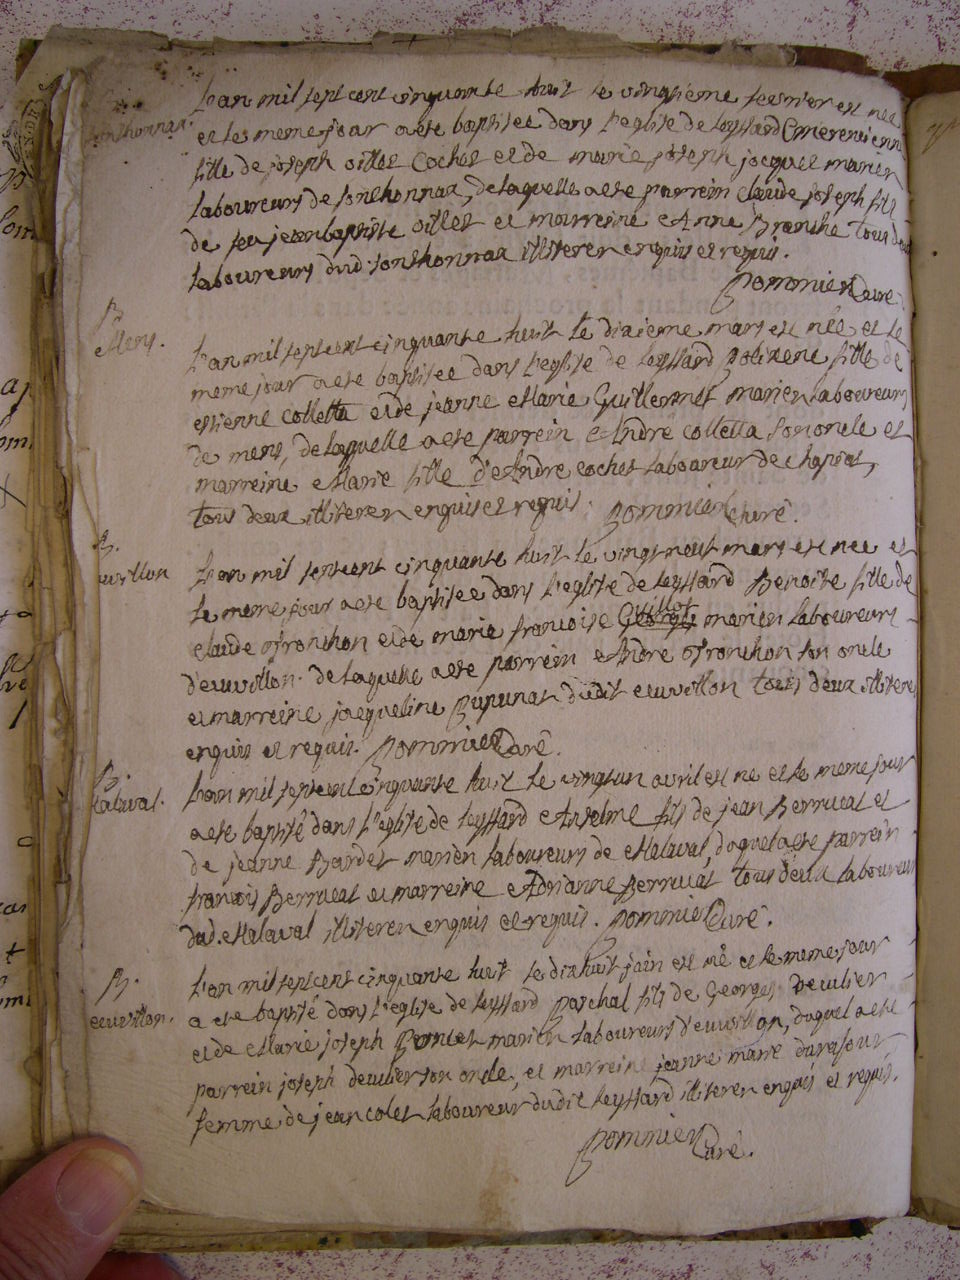 L'an mil sept cent cinquante huit le vingtieme fevrier est née
sonthonnax. et le meme jour a ete baptisee dans l'eglise de leyssard Emerentienne
fille de joseph oillet Cochet et de marie joseph jacquet mariér
laboureurs de sonthonnax, de laquelle a ete parrein claude joseph fils
de feu jean baptiste oillet et marreine Anne Branche tous deux
laboureurs dud. sonthonnax illiterer enquis et requis.
pommier Curé.
B.
Mens. L'an mil sept cent cinquante huit le dixieme mars est née et le
meme jour a ete baptisee dans l'eglise de leyssard polixene fille de
estienne colletta et de jeanne Marie Guillermet mariér laboureurs
de mens, de laquelle a ete parrein André colletta son oncle et
marreine Marie fille d'André cochet laboureur de chapiat,
tous deux illiterer enquis et requis. pommier Curé.
B.
euvillon L'an mil sept cent cinquante huit le vingt neuf mars est née et
le meme jour a ete baptisee dans l'eglise de leyssard Benoite fille de
claude fronthon et de marie francoise Guillet mariér laboureurs
d'euvillon. de laquelle a ete parrein André fronthon son oncle
et marreine jacqueline pupunat dudit euvillon tous deux illiterer
enquis et requis. pommier Curé.
B.
Malaval. L'an mil sept cent cinquante huit le vingt un avril est ne et le meme jour
a ete baptisé dans l'eglise de leyssard Anselme fils de jean Berrucat et
de jeanne Bardet mariér laboureurs de Malaval, duquel a ete parrein
francois Berrucat et marreine Adrianne Berrucat tous deux laboureurs
dud. Malaval illiterer enquis et requis. pommier Curé.
B.
euvillon. L'an mil sept cent cinquante huit le dix huit juin est né et le meme jour
a ete baptisé dans l'eglise de leyssard paschal fils de George deculier
et de Marie joseph poncet mariér laboureurs d'euvillon, duquel a ete
parrein joseph deculier son oncle, et marreine jeanne marie durafour,
femme de jean colet laboureur dudit leyssard illiterer enquis et requis.
pommier Curé.